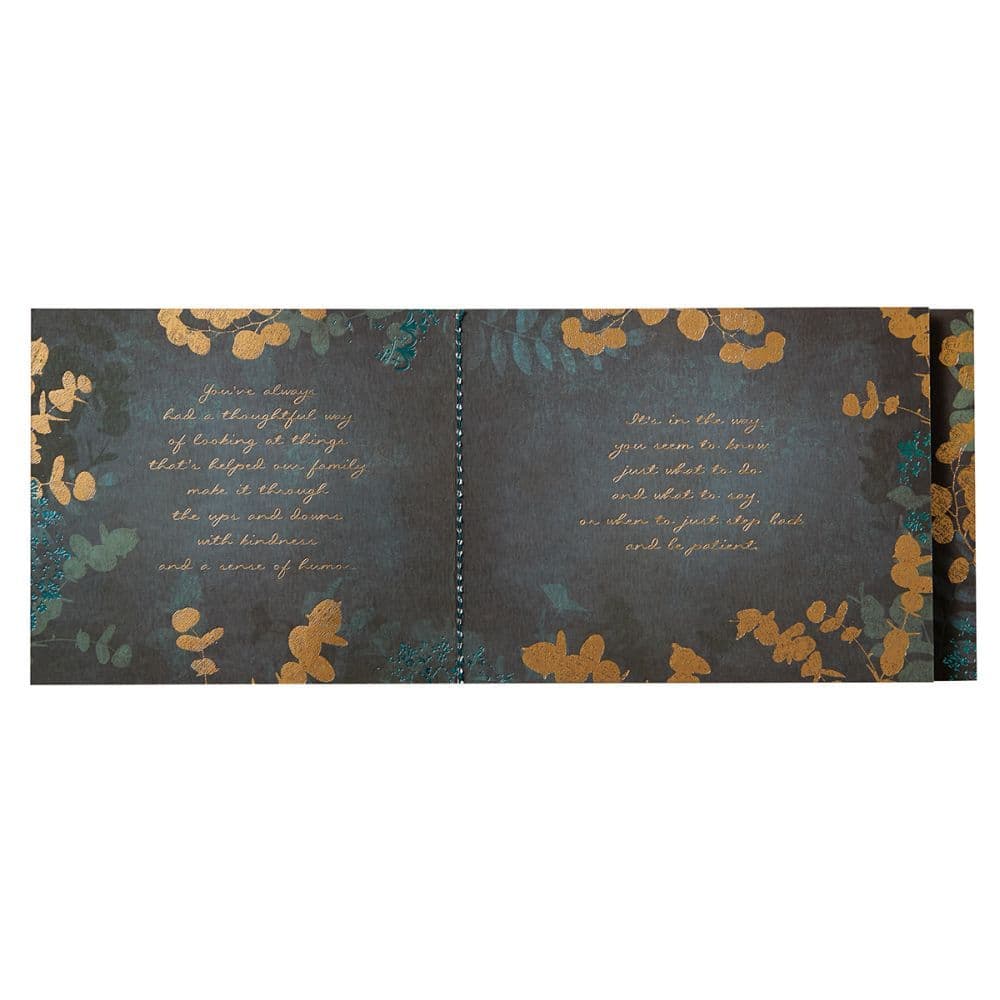 You've always
had a thoughtful way
of looking at things
that's helped our family
make it through
the ups and downs
with kindness
and a sense of humor.
It's in the way
you seem to know
just what to do
and what to say,
or when to just step back
and be patient.